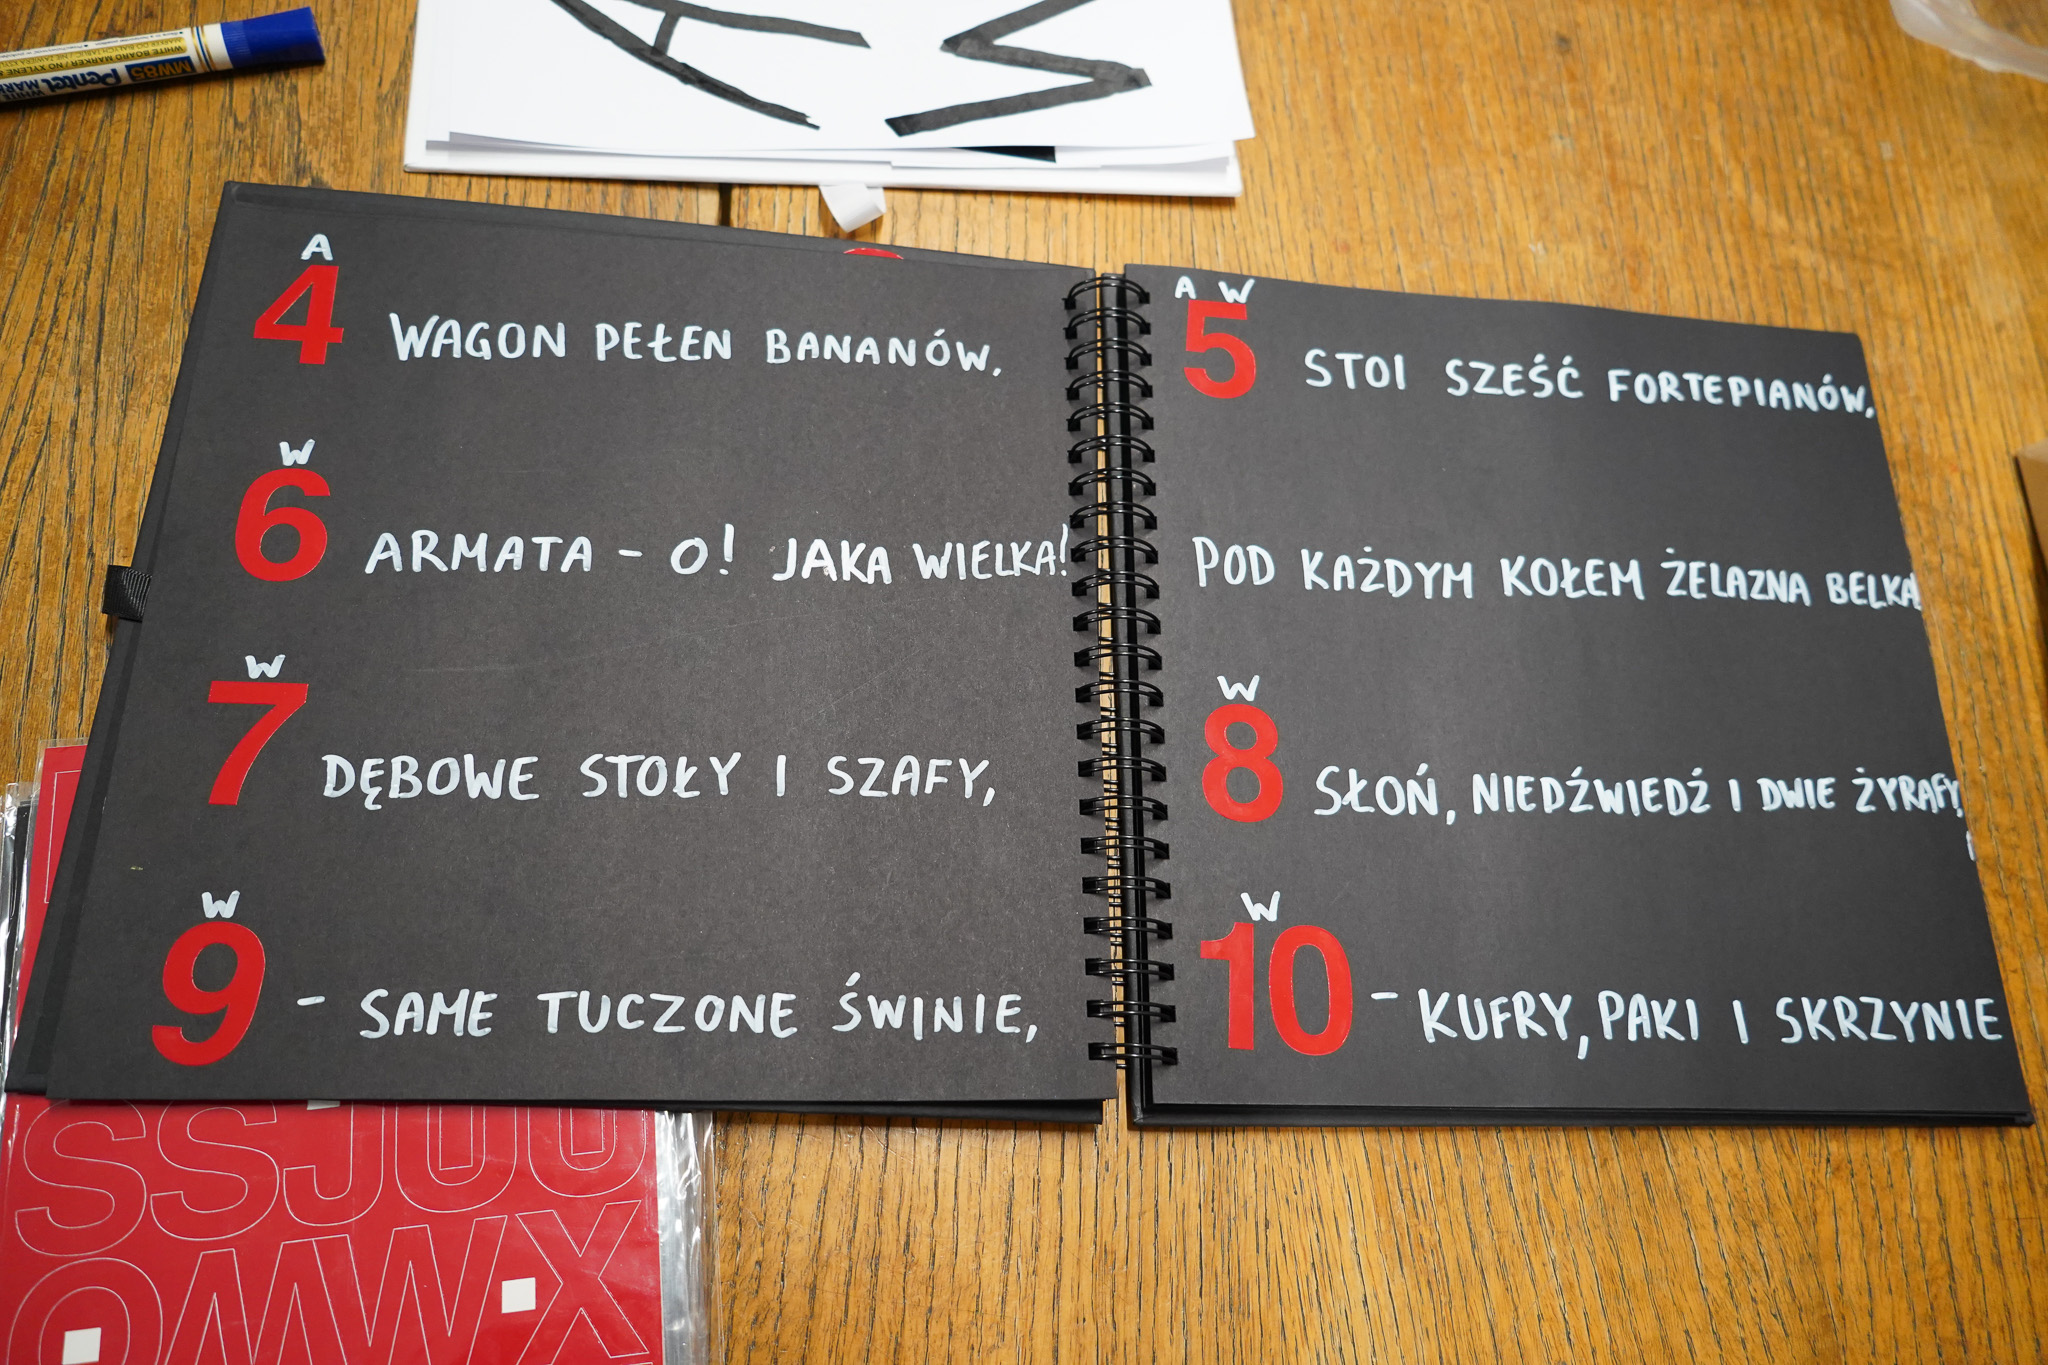 WHITE BOARD MARKER / NO XYLENE
MW85 Pentel
A W
A
4 WAGON PEŁEN BANANÓW,
A W
5 STOI SZEŚĆ FORTEPIANÓW,
W
6 ARMATA - O! JAKA WIELKA!
POD KAŻDYM KOŁEM ŻELAZNA BELKA!
W
7 DĘBOWE STOŁY I SZAFY,
W
8 SŁOŃ, NIEDŹWIEDŹ I DWIE ŻYRAFY,
W
9 - SAME TUCZONE ŚWINIE,
W
10 - KUFRY, PAKI I SKRZYNIE
SSJUU
OMWX